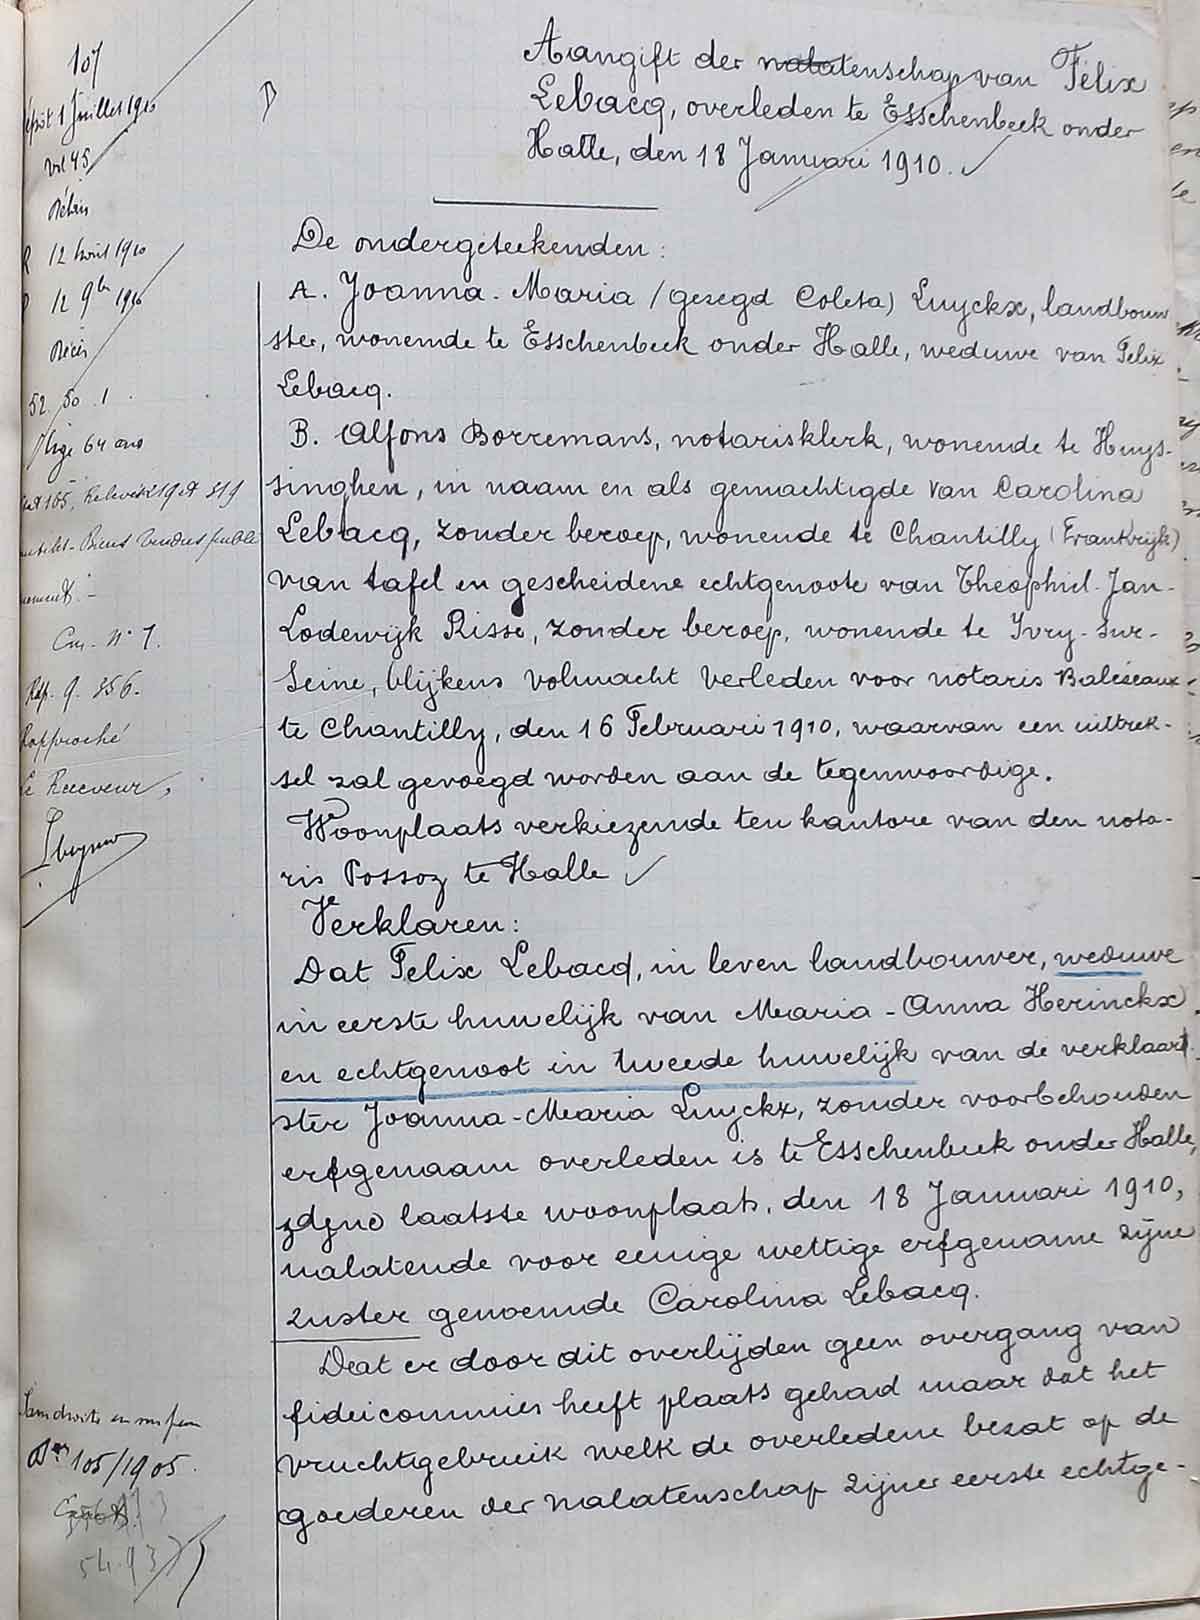 107
Aangift der nalatenschap van Félix
Lebacq, overleden te Esschenbeek onder
Halle, den 18 Januari 1910.
dépôt 1 Juillet 1910
Vol 45
Décès
R 12 Août 1910
D 12 9bre 1910
Décès
52. 50. 1
Agé 64 ans
Biens vendus publi
Cm. N° 7.
Rep. 9. 356.
Rapproché
Le Receveur,
De ondergeteekenden:
A. Joanna-Maria (gezegd Coleta) Luyckx, landbouw
ster, wonende te Esschenbeek onder Halle, weduwe van Felix
Lebacq.
B. Alfons Borremans, notarisklerk, wonende te Huys-
singhen, in naam en als gemachtigde van Carolina
Lebacq, zonder beroep, wonende te Chantilly (Frankrijk)
van tafel en gescheidene echtgenoote van Théophiel-Jan-
Lodewijk Risse, zonder beroep, wonende te Ivry-sur-
Seine, blijkens volmacht verleden voor notaris Baléseaux
te Chantilly, den 16 Februari 1910, waarvan een uittrek-
sel zal gevoegd worden aan de tegenwoordige.
Woonplaats verkiezende ten kantore van den nota-
ris Possoz te Halle
Verklaren:
Dat Felix Lebacq, in leven landbouwer, weduwe
in eerste huwelijk van Maria-Anna Herinckx
en echtgenoot in tweede huwelijk van de verklaart
ster Joanna-Maria Luyckx, zonder voorbehouden
erfgenaam overleden is te Esschenbeek onder Halle,
zijne laatste woonplaats, den 18 Januari 1910,
nalatende voor eenige wettige erfgename zijne
zuster genoemde Carolina Lebacq.
Dat er door dit overlijden geen overgang van
fideicommies heeft plaats gehad maar dat het
vruchtgebruik welk de overledene bezat op de
goederen der nalatenschap zijner eerste echtge-
105/1905.
54.93